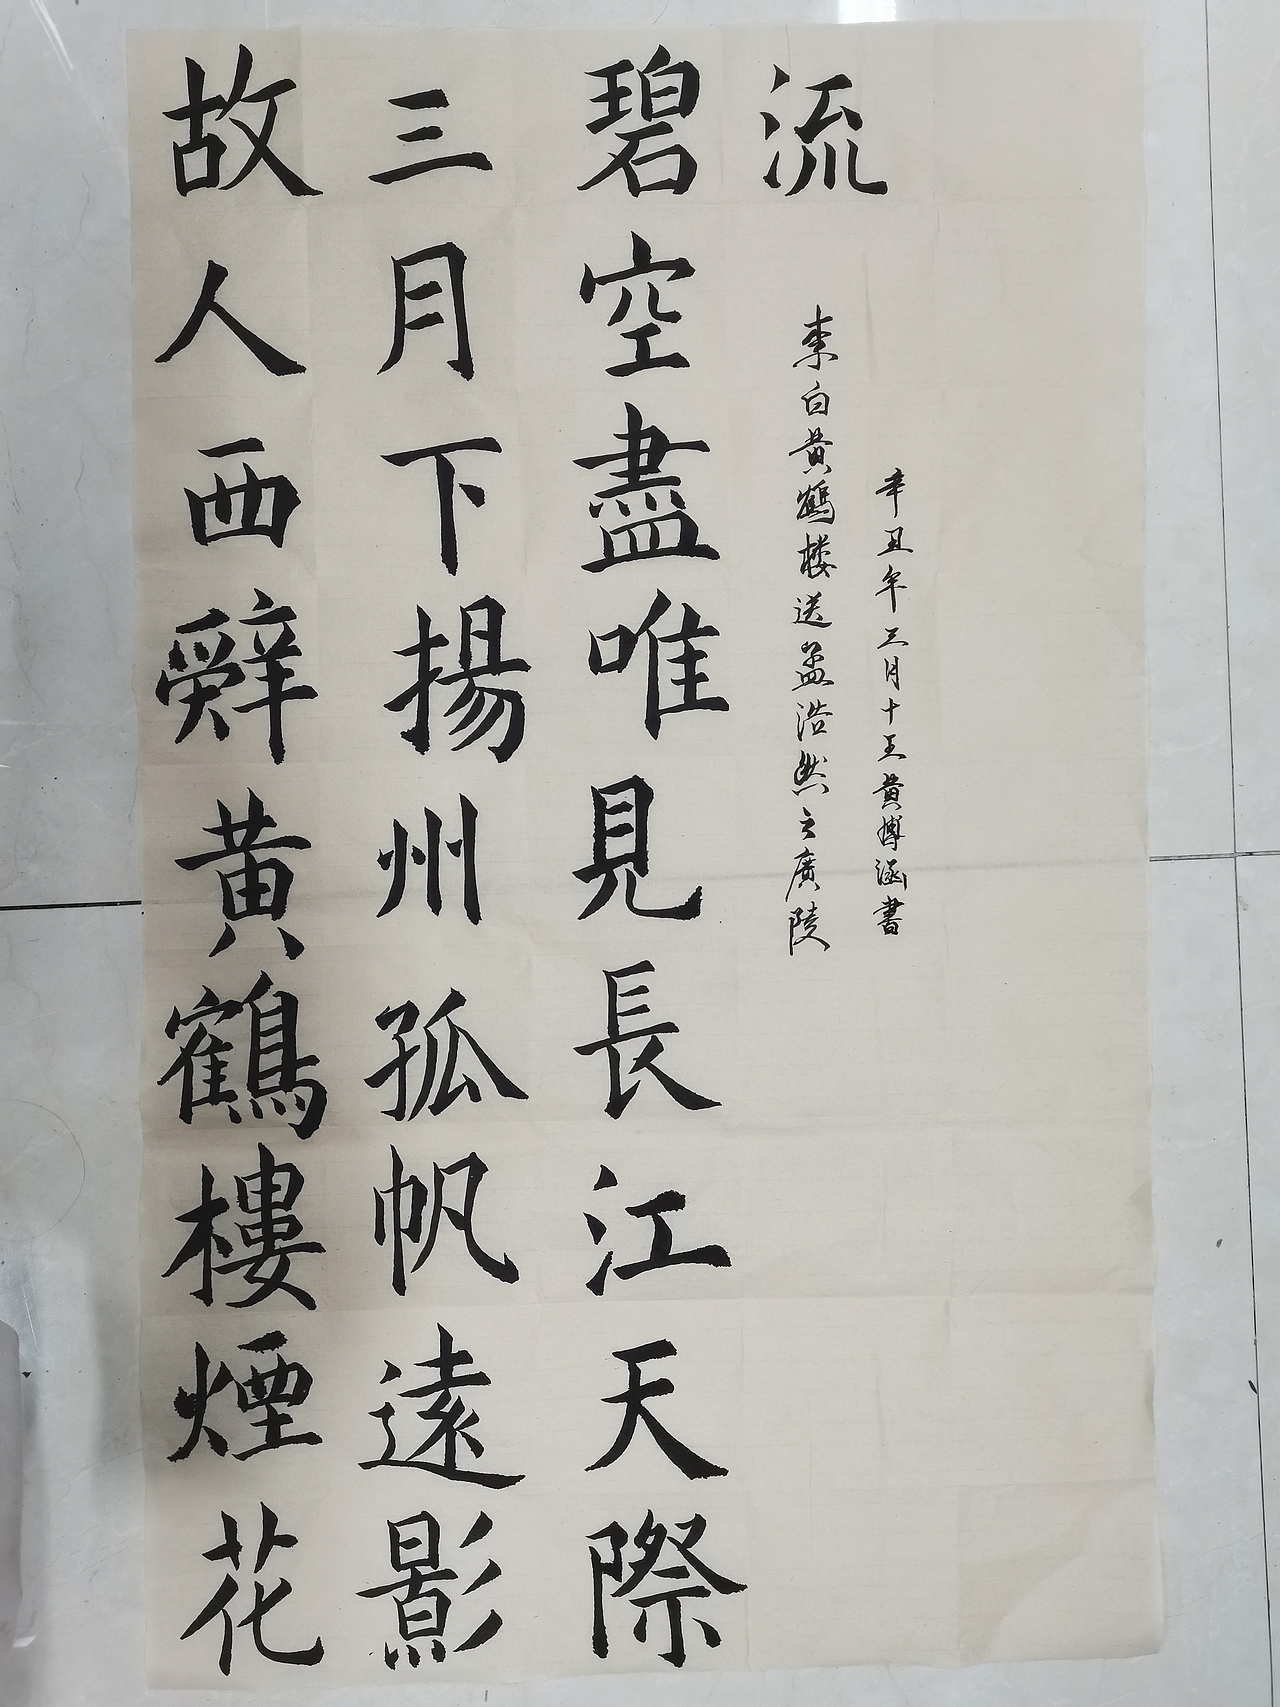 故人西辭黄鶴樓煙花
三月下揚州孤帆遠影
碧空盡唯見長江天際
流
李白黄鶴楼送孟浩然之廣陵
辛丑年三月十五黄博涵書